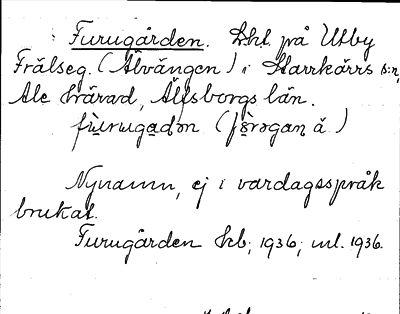 Furugården. Lht. på Utby
Frälseg. (Älvängen) i Starrkärrs s:n,
Ale härad, Älfsborgs län.
fùrugadən
Nynamn, ej i vardagsspråk
brukat.
Furugården Lht; 1936; ml. 1936.